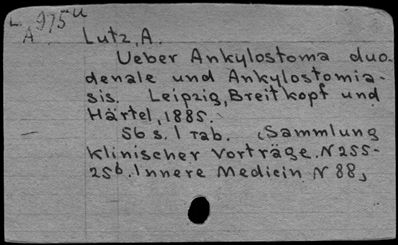 L. 975u
A
Lutz, A.
Ueber Ankylostoma duo-
denale und Ankylostomia-
sis. Leipzig, Breitkopf und
Härtel, 1885.
56 s. 1 Tab. (Sammlung
klinischer Vorträge. N 255-
256. Innere Medicin N 88)